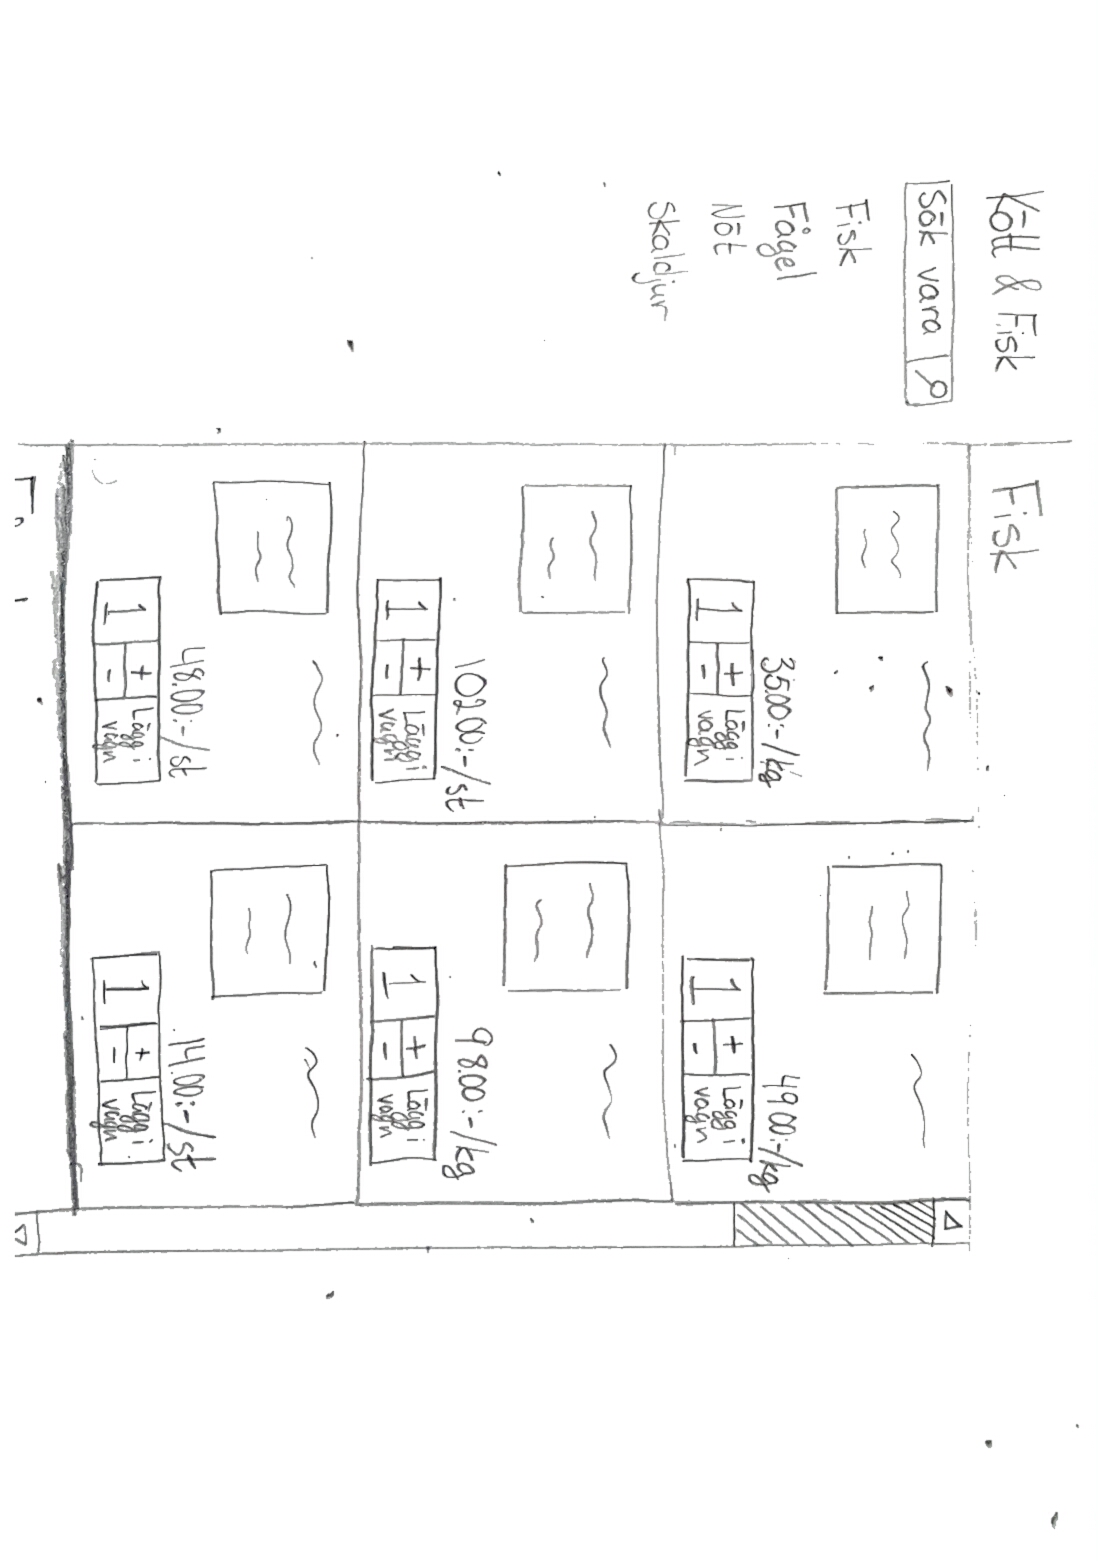 Kött & Fisk
Sök vara
Fisk
Fågel
Nöt
Skaldjur
Fisk
35.00:-/kg
1 + - Lägg i
vagn
49.00:-/kg
1 + - Lägg i
vagn
102.00:-/st
1 + - Lägg i
vagn
98.00:-/kg
1 + - Lägg i
vagn
48.00:-/st
1 + - Lägg i
vagn
14.00:-/st
1 + - Lägg i
vagn